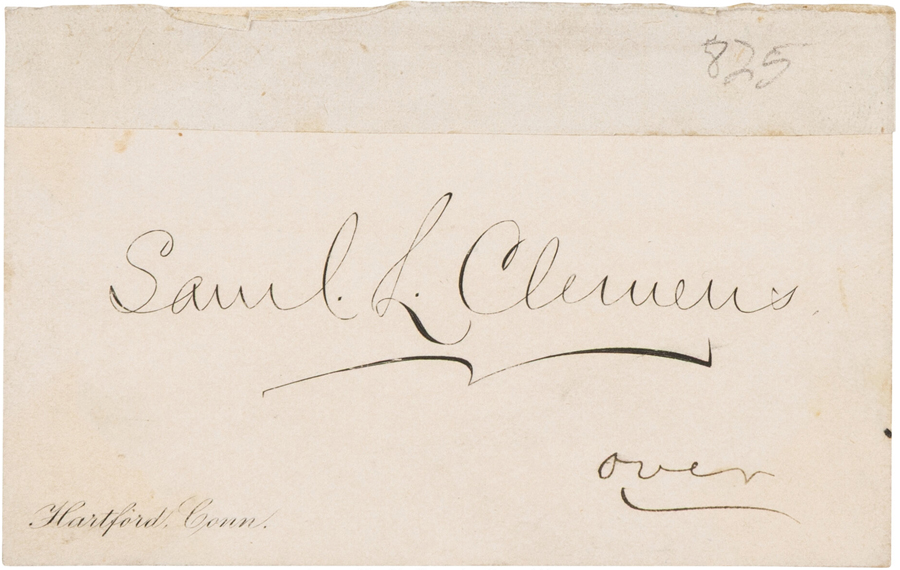 825
Saml. L. Clemens
over
Hartford, Conn.